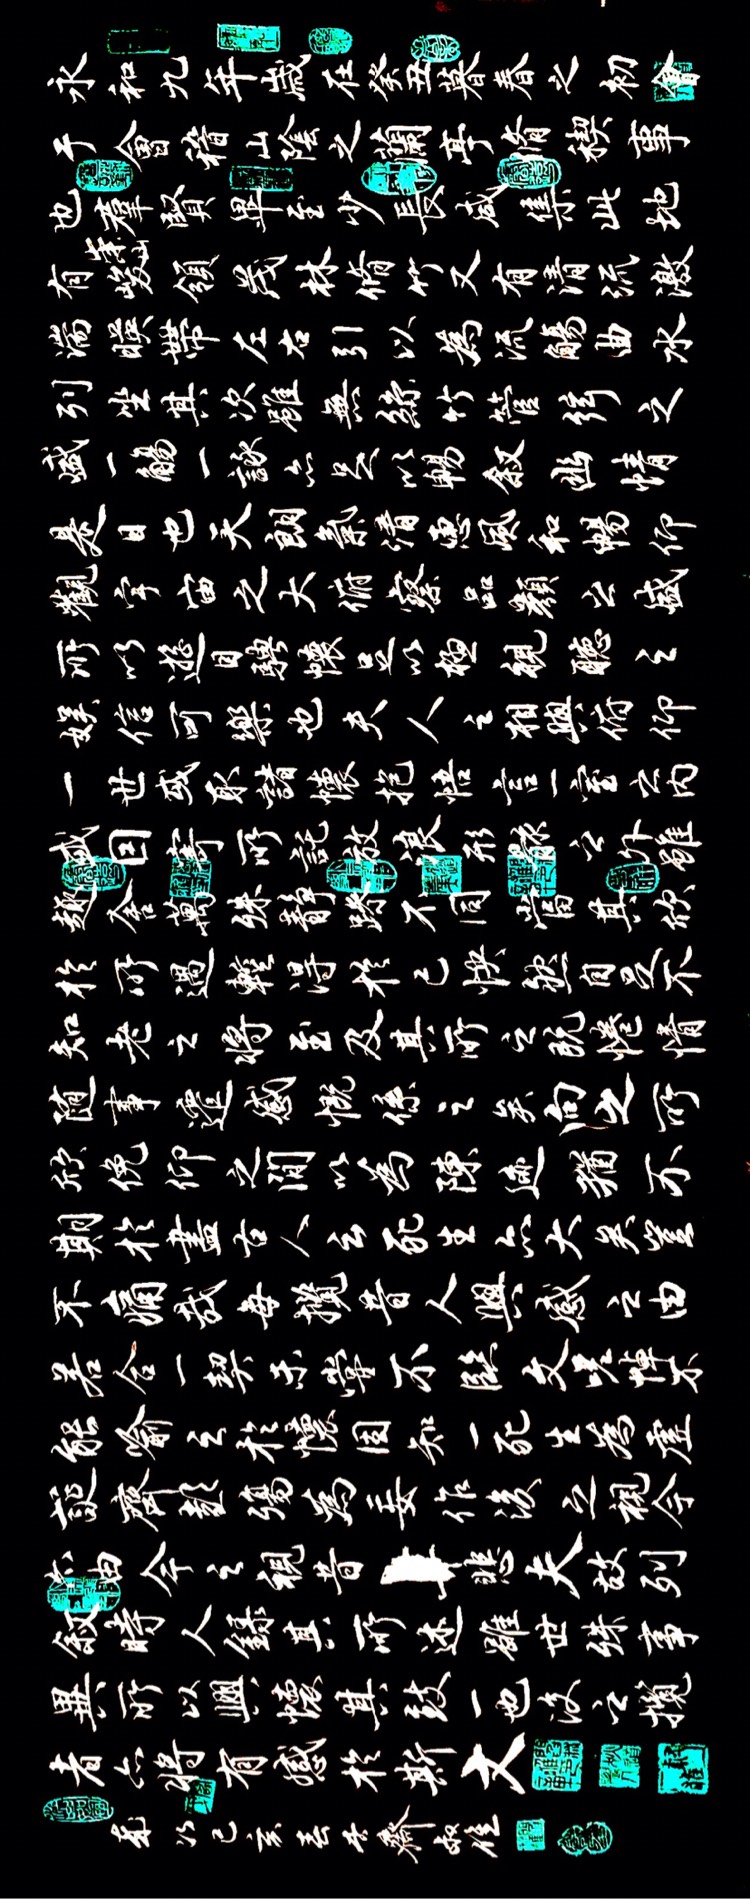 永和九年歲在癸丑暮春之初會
于會稽山陰之蘭亭脩稧事
也羣賢畢至少長咸集此地
有崇山峻領茂林脩竹又有清流激
湍暎帶左右引以為流觴曲水
列坐其次雖無絲竹管弦之
盛一觴一詠亦足以暢敘幽情
是日也天朗氣清惠風和暢仰
觀宇宙之大俯察品類之盛
所以遊目騁懷足以極視聽之
娛信可樂也夫人之相與俯仰
一世或取諸懷抱悟言一室之內
或因寄所託放浪形骸之外雖
趣舍萬殊靜躁不同當其欣
於所遇輒得於己快然自足不
知老之將至及其所之既惓情
隨事遷感慨係之矣向之所
欣俛仰之閒以為陳迹猶不
期於盡古人云死生亦大矣豈
不痛哉每攬昔人興感之由
若合一契未嘗不臨文嗟悼不
能喻之於懷固知一死生為虛
誕齊彭殤為妄作後之視今
亦由今之視昔 悲夫故列
敘時人錄其所述雖世殊事
異所以興懷其致一也後之攬
者亦將有感於斯文
己亥